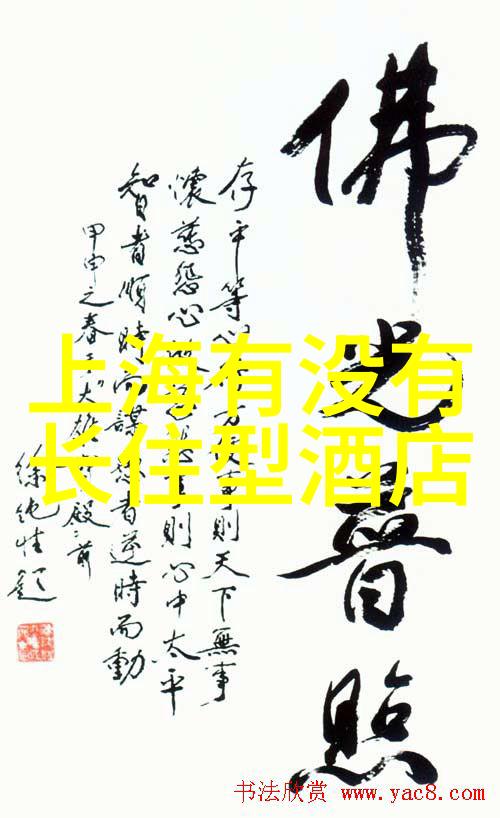 佛光普照
存平等心
則天下無事
懷慈
則心中太平
智者順時而謀
者逆時而動
甲申之春于大雄
殿前
上海有没有
长住型酒店
书法欣赏 www.yac8.com